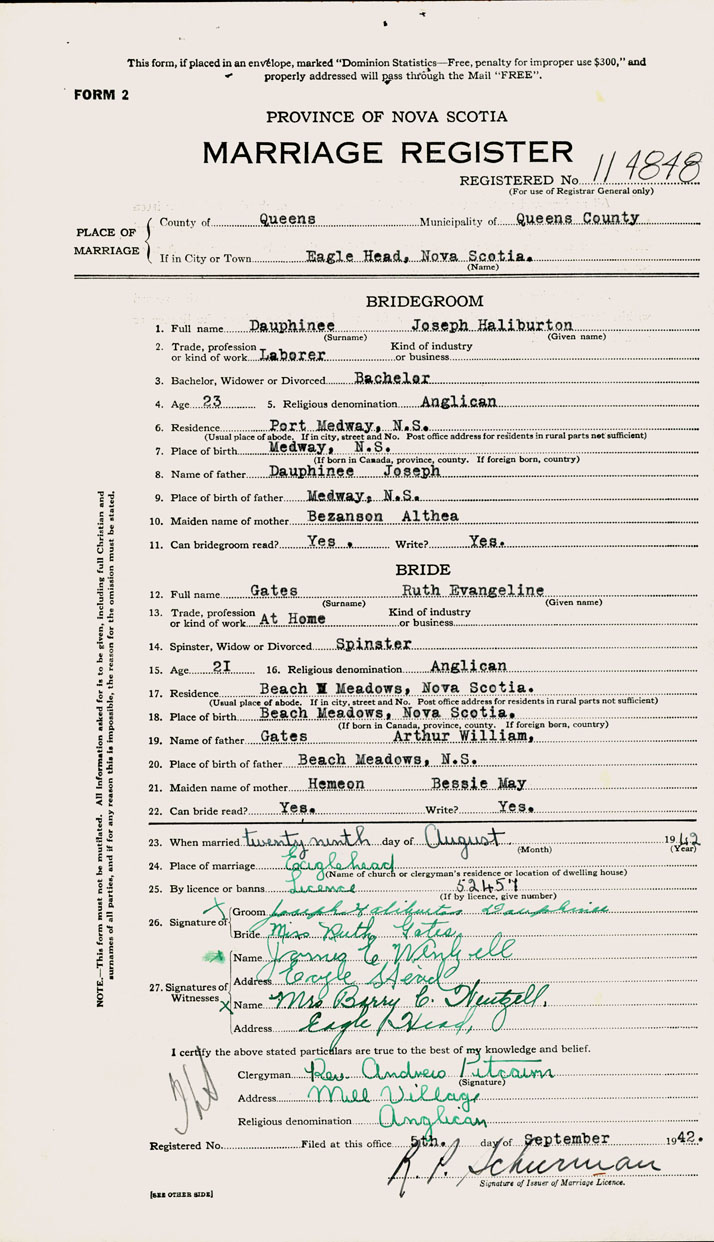 This form, if placed in an envelope, marked "Dominion Statistics—Free, penalty for improper use $300," and
properly addressed will pass through the Mail "FREE".
FORM 2
PROVINCE OF NOVA SCOTIA
MARRIAGE REGISTER
REGISTERED No. 114848
(For use of Registrar General only)
PLACE OF MARRIAGE
County of Queens Municipality of Queens County
If in City or Town Eagle Head, Nova Scotia.
(Name)
BRIDEGROOM
1. Full name Dauphinee Joseph Haliburton
(Surname) (Given name)
2. Trade, profession or kind of work Laborer Kind of industry or business
3. Bachelor, Widower or Divorced Bachelor
4. Age 23 5. Religious denomination Anglican
6. Residence Port Medway, N.S.
(Usual place of abode. If in city, street and No. Post office address for residents in rural parts not sufficient)
7. Place of birth Medway, N.S.
(If born in Canada, province, county. If foreign born, country)
8. Name of father Dauphinee Joseph
9. Place of birth of father Medway, N.S.
10. Maiden name of mother Bezanson Althea
11. Can bridegroom read? Yes . Write? Yes.
BRIDE
12. Full name Gates Ruth Evangeline
(Surname) (Given name)
13. Trade, profession or kind of work At Home Kind of industry or business
14. Spinster, Widow or Divorced Spinster
15. Age 2I 16. Religious denomination Anglican
17. Residence Beach Meadows, Nova Scotia.
(Usual place of abode. If in city, street and No. Post office address for residents in rural parts not sufficient)
18. Place of birth Beach Meadows, Nova Scotia.
(If born in Canada, province, county. If foreign born, country)
19. Name of father Gates Arthur William,
20. Place of birth of father Beach Meadows, N.S.
21. Maiden name of mother Hemeon Bessie May
22. Can bride read? Yes. Write? Yes.
23. When married twenty ninth day of August 1942
(Month) (Year)
24. Place of marriage Eaglehead
(Name of church or clergyman's residence or location of dwelling house)
25. By licence or banns Licence 52457
(If by licence, give number)
26. Signature of
X Groom Joseph Haliburton Dauphinee
Bride Miss Ruth Gates
27. Signatures of Witnesses
X Name James E
Address Eagle Head
X Name Mrs Barry C.
Address Eagle Head,
I certify the above stated particulars are true to the best of my knowledge and belief.
Clergyman Rev. Andrew Pitcairn
(Signature)
Address Mill Village
Religious denomination Anglican
Registered No. Filed at this office 5th. day of September 1942.
R. P. Schurman
Signature of Issuer of Marriage Licence.
[SEE OTHER SIDE]
NOTE.—This form must not be mutilated. All information asked for is to be given, including full Christian and
surnames of all parties, and if for any reason this is impossible, the reason for the omission must be stated.